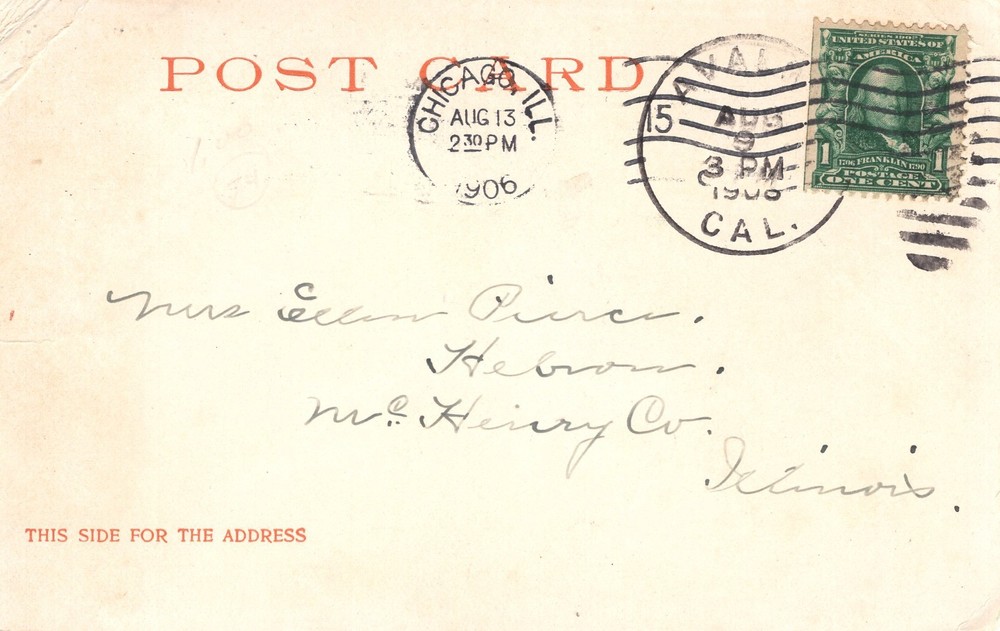 POST CARD
CHICAGO, ILL.
AUG 13
2 30 PM
1906
15
AUG
9
3 PM
1906
CAL.
SERIES 1902
UNITED STATES OF
AMERICA
1706 FRANKLIN 1790
1 1
POSTAGE
ONE CENT
Mrs Ellen Pierce.
Hebron.
Mc. Henry Co.
Illinois.
THIS SIDE FOR THE ADDRESS